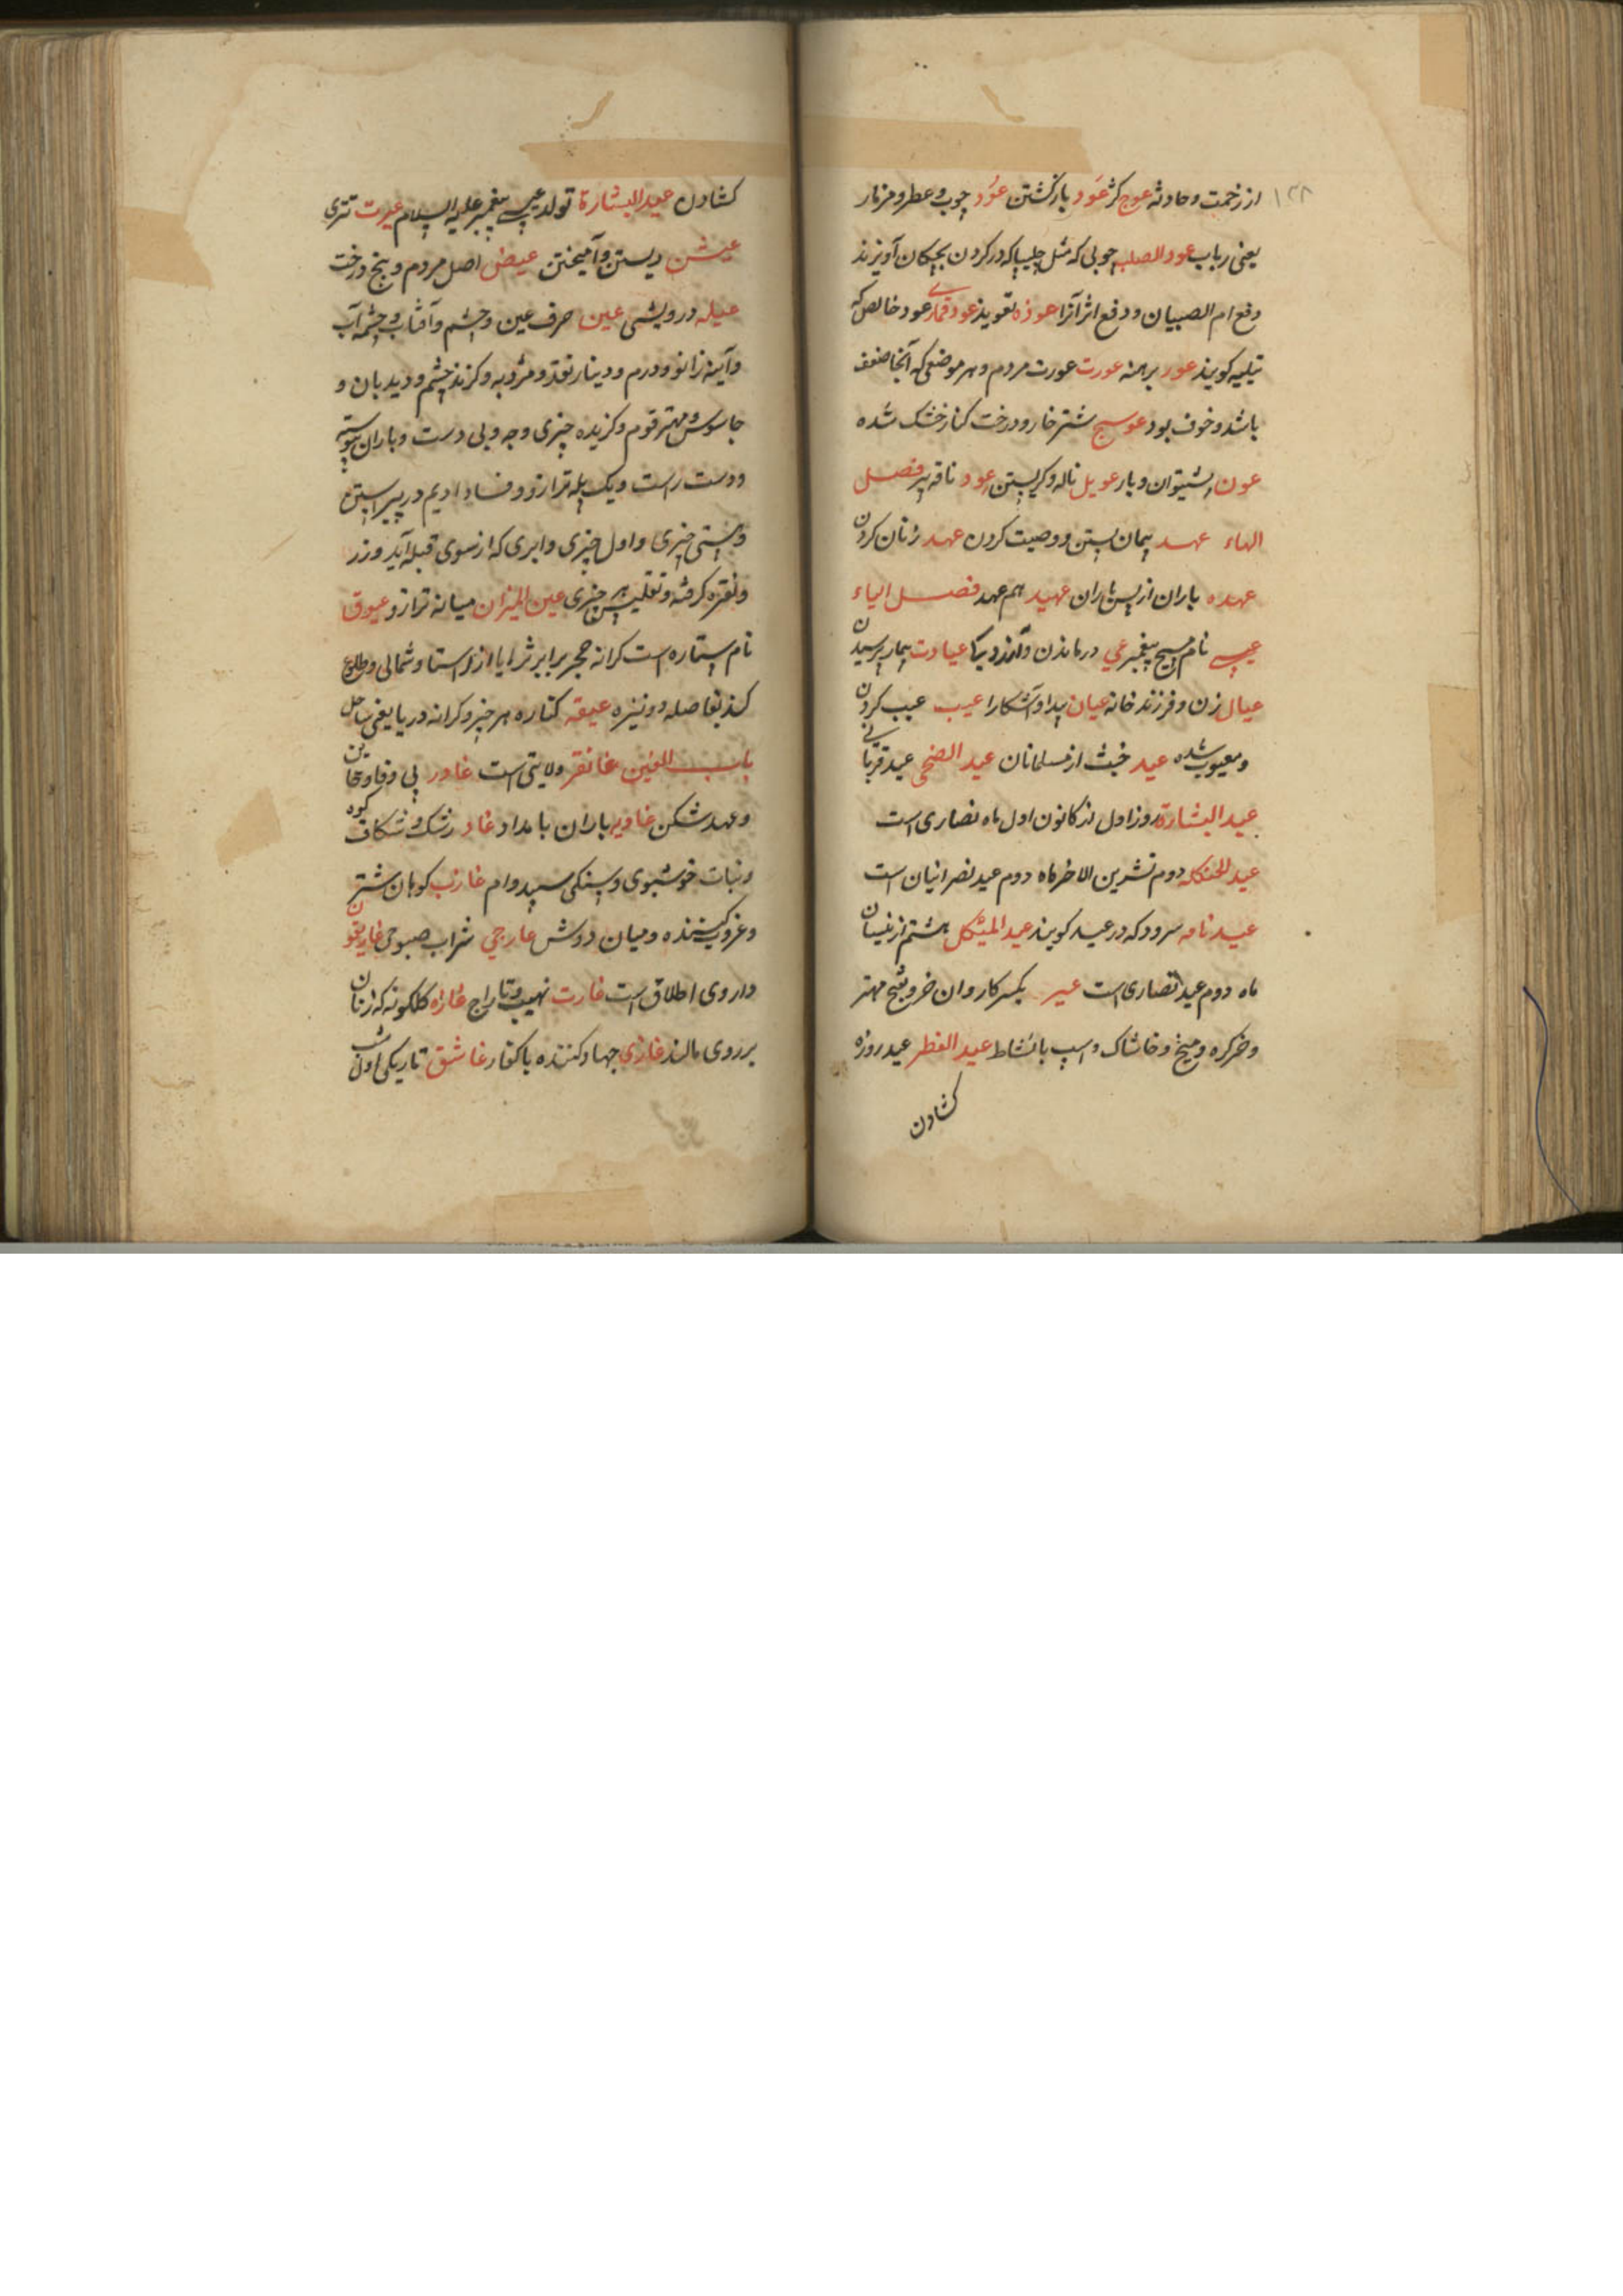 ۱۲۸
از زخمت و حادثه عوج کژ عَود بازگشتن عُود چوب و عطر و مزمار
یعنی رباب عود الصلیب چوبی که مثل چلیپا که در کردن بچکان آویزند
دفع ام الصبیان و دفع اثر آنرا عوذه تعویذ عود قماری عود خالص که
کویند عور برهنه عورت عورت مردم و هر موضعی که آنجا ضعف
باشد و خوف بود عوسج شترخار و درخت کنار خشک شده
عون پشتیوان و یار عویل ناله و کریستن عود ناقه پیر فصل
الهاء عهد پیمان بستن و وصیت کردن عهد زنان کردن
عهده باران از پس باران عهید هم عهد فصل الیاء
عیسی نام مسیح پیغمبر عی درماندن و عیادت بیمار پرسیدن
عیال زن و فرزند خانه عیان پیدا و آشکارا عیب عیب کردن
و معیوب شده عید از مسلمانان عید الضحی عید قربانی
عید البشارة روز اول از کانون اول ماه نصاری است
دوم تشرین الاخر ماه دوم عید نصرانیان است
عید نامه سرود که در عید کویند عید هشتم از نیسان
ماه دوم عید نصاری است عیر بکسر کاروان خر و بفتح مهتر
و خرکره و میخ و خاشاک و اسپ بانشاط عید الفطر عید روزه
کشادن
کشادن عید البشارة تولد عیسی پیغمبر علیه السلام عیرت
عیش زیستن و آمیختن عیص اصل مردم و بیخ درخت
عیله درویشی عین حرف عین و چشم و آفتاب و چشمه آب
و آینه زانو و درم و دینار نقد و مژده و کزند چشم و دیدبان و
جاسوس و مهتر قوم و کزیده چیزی و جه و بی درست و باران پیوسته
و دست راست و یک پله ترازو و فساد ادیم در پیراستن
و چیزی و اول چیزی و ابری که از سوی قبله آید و زر
و نقره کرفته و چیزی عین المیزان میانه ترازو عیوق
نام ستاره است کرانه مجر برابر ثریا از و شمالی و طلوع
کند بفاصله دو نیزه عیقه کناره هر چیز و کرانه دریا یعنی ساحل
باب الغین غاتفر ولایتی است غادر بی وفا و خاین
و عهد شکن غادیه باران بامداد غار رشک و شکاف کوه
و نبات خوشبوی و سپید وام غارب کوهان شتر
و غروب کننده و میان دوش غارجی شراب صبوحی غاریقون
داروی اطلاق است غارت نهیب و تاراج غازه کلکونه که زنان
بر روی مالند غازی جهاد کننده با کفار غاسق تاریکی اول شب